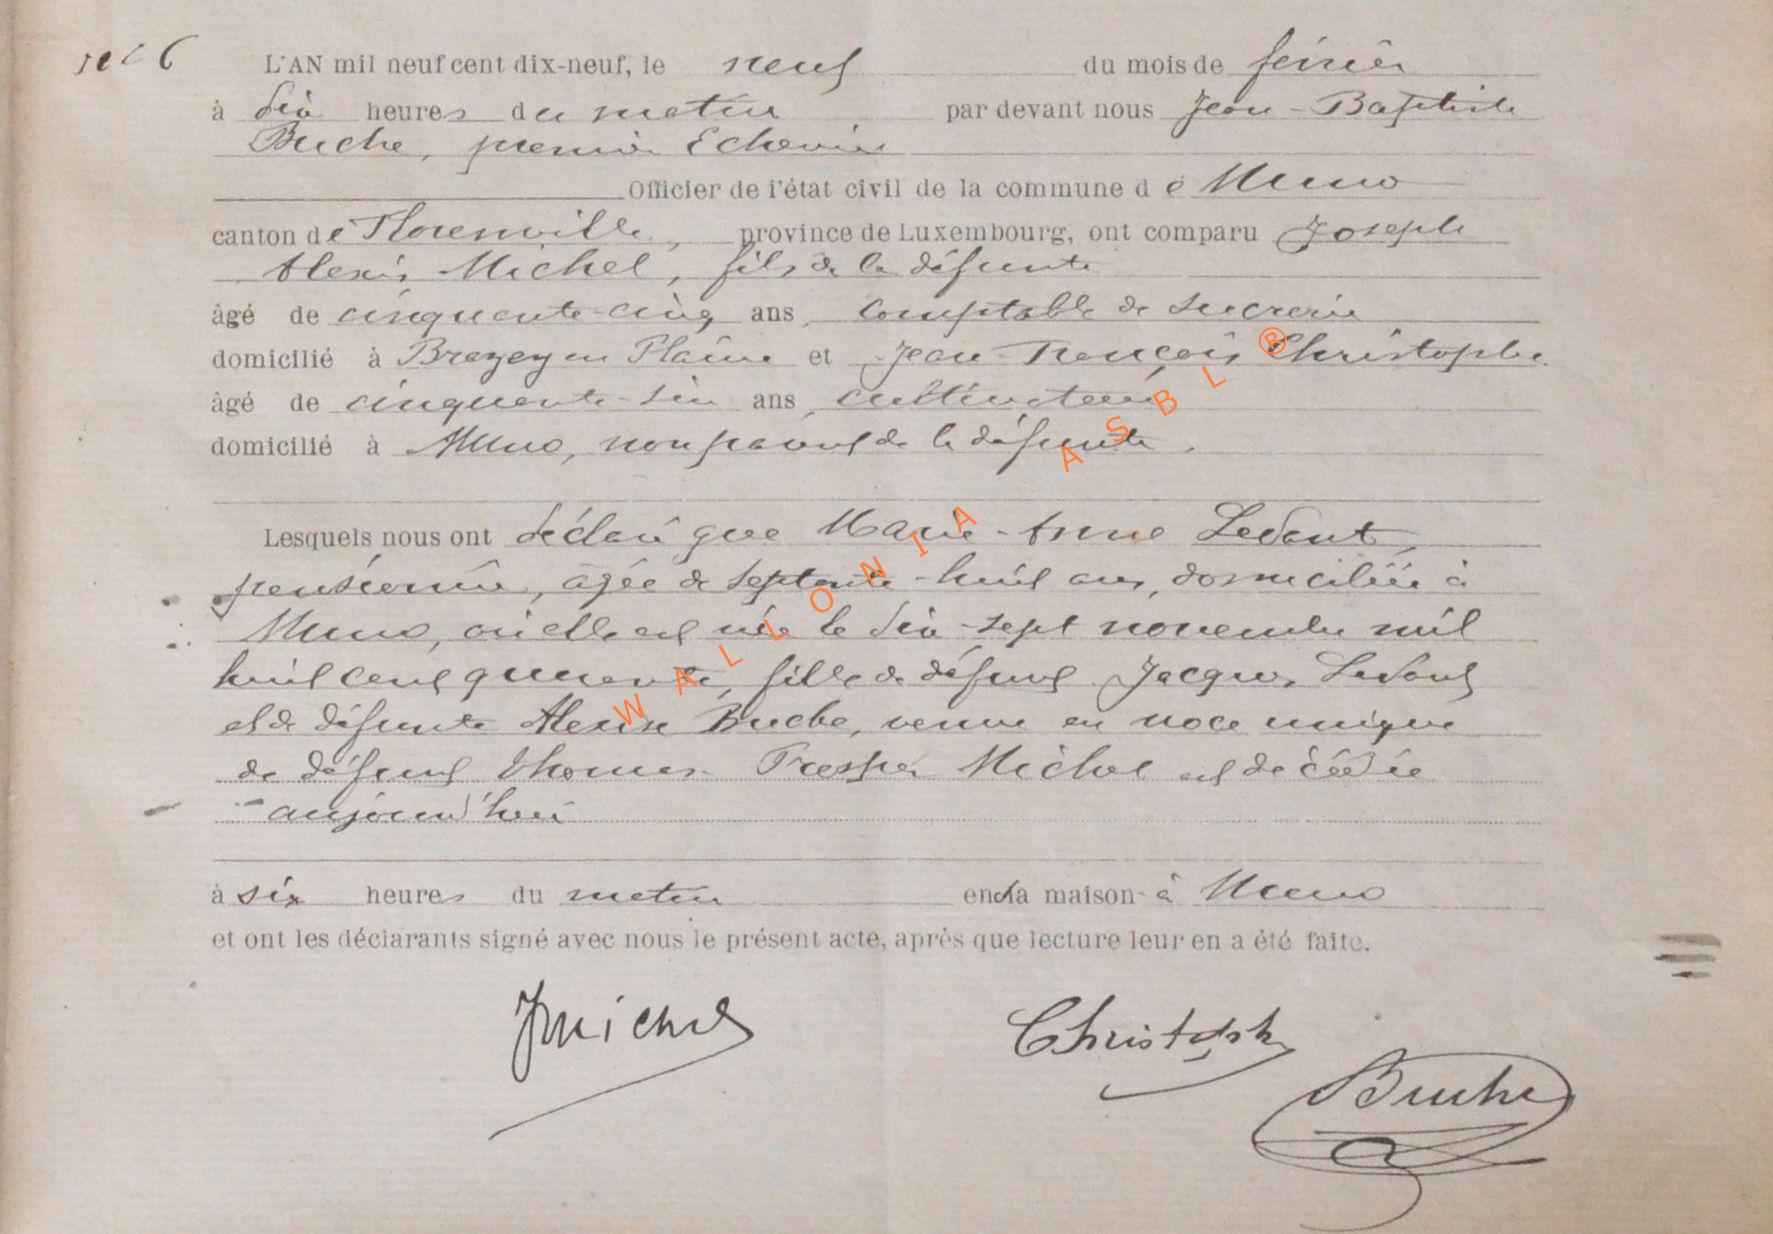 N° 6
L'AN mil neuf cent dix-neuf, le neuf du mois de février
à dix heures du matin par devant nous Jean-Baptiste
Buche, premier Echevin
Officier de l'état civil de la commune de Muno
canton de Florenville, province de Luxembourg, ont comparu Joseph
Alexis Michel, fils de la défunte
âgé de cinquante-cinq ans, comptable de sucrerie
domicilié à Brazey en Plaine et Jean-François Christophe
âgé de cinquante-six ans, cultivateur
domicilié à Muno, non parent de la défunte.
Lesquels nous ont déclaré que Marie-Anne Ledant,
pensionnée, âgée de septante-huit ans, domiciliée à
Muno, où elle est née le dix-sept novembre mil
huit cent quarante, fille de défunt Jacques Ledant
et de défunte Alexise Buche, veuve en noce unique
de défunt Thomas Prosper Michel est décédée
aujourd'hui
à six heures du matin en sa maison à Muno
et ont les déclarants signé avec nous le présent acte, après que lecture leur en a été faite.
JMichel Christophe
Buche
WALLONIA ASBL ®